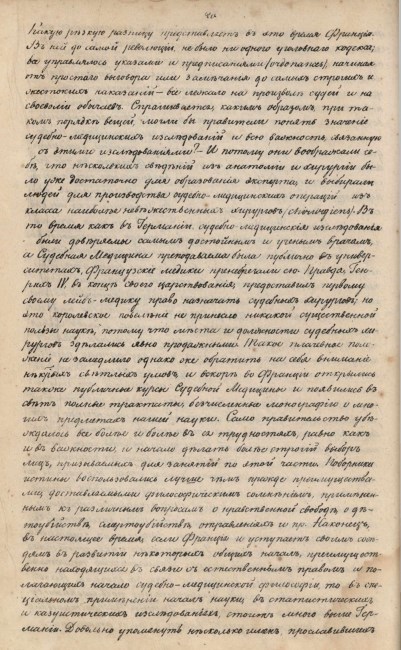 20
скую рѣзкую разницу представляетъ въ это время Франція.
Въ ней до самой революціи, не было ни одного уголовнаго кодекса;
все управлялось указами и предписаніями (ordonances), начиная
отъ простаго выговора или замѣчанія до самыхъ строгихъ и
жестокихъ наказаній – все лежало на произволѣ судей и на
своеволіи обычаевъ. Спрашивается, какимъ образомъ, при та-
комъ порядкѣ вещей, могли бы правители понять значеніе
судебно-медицинскихъ изслѣдованій и всю важность связанную
съ этими изслѣдованіями? – И потому они воображали се-
бѣ, что нѣсколькихъ свѣдѣній изъ анатоміи и хирургіи бы-
ло уже достаточно для образованія эксперта, и выбирали
людей для производства судебно-медицинскихъ операцій изъ
класса наиболѣе невѣжественныхъ хирурговъ Въ
то время какъ въ Германіи, судебно-медицинскія изслѣдованія
были довѣряемы самымъ достойнымъ и ученымъ врачамъ,
а Судебная Медицина преподаваема была публично въ универ-
ситетахъ, Французскіе медики пренебрегали ею. Правда, Ген-
рихъ IV, въ концѣ своего царствованія, предоставилъ первому
своему лейбъ-медику право назначать судебныхъ хирурговъ; но
это королевское повелѣніе не принесло никакой существенной
пользы наукѣ, потому что мѣста и должности судебныхъ хи-
рурговъ сдѣлались явно продажными. Такое плачевное поло-
женіе не замедлило однако же обратить на себя вниманіе
нѣкрыхъ свѣтлыхъ умовъ и вскорѣ во Франціи открылись
также публичные курсы Судебной Медицины и появились въ
свѣтъ полные трактаты, безчисленныя монографіи о мно-
гихъ предметахъ нашей науки. Само правительство убѣ-
ждалось все болѣе и болѣе въ ея трудностяхъ, равно какъ
и въ важности, и начало дѣлать болѣе строгій выборъ
лицъ, призываемыхъ для занятій по этой части. Поборники
истины воспользовались лучше чѣмъ прежде преимущества-
ми доставляемыми философическимъ сомнѣніемъ, примѣнен-
нымъ къ различнымъ вопросамъ о нравственной свободѣ, о дѣ-
тоубійствѣ, смертоубійствѣ, отравленіяхъ и пр. Наконецъ,
въ настоящее время, если Франція и уступаетъ своимъ сосѣ-
дямъ въ развитіи нѣкоторыхъ общихъ началъ, преимущест-
венно находящихся въ связи съ естественнымъ правомъ и по-
лагающихъ начало судебно-медицинской философіи, то въ спе-
ціальномъ примѣненіи началъ науки, въ статистическихъ
и казуистическихъ изслѣдованіяхъ, стоитъ много выше Гер-
маніи. Довольно упомянуть нѣсколько именъ, прославившихъ